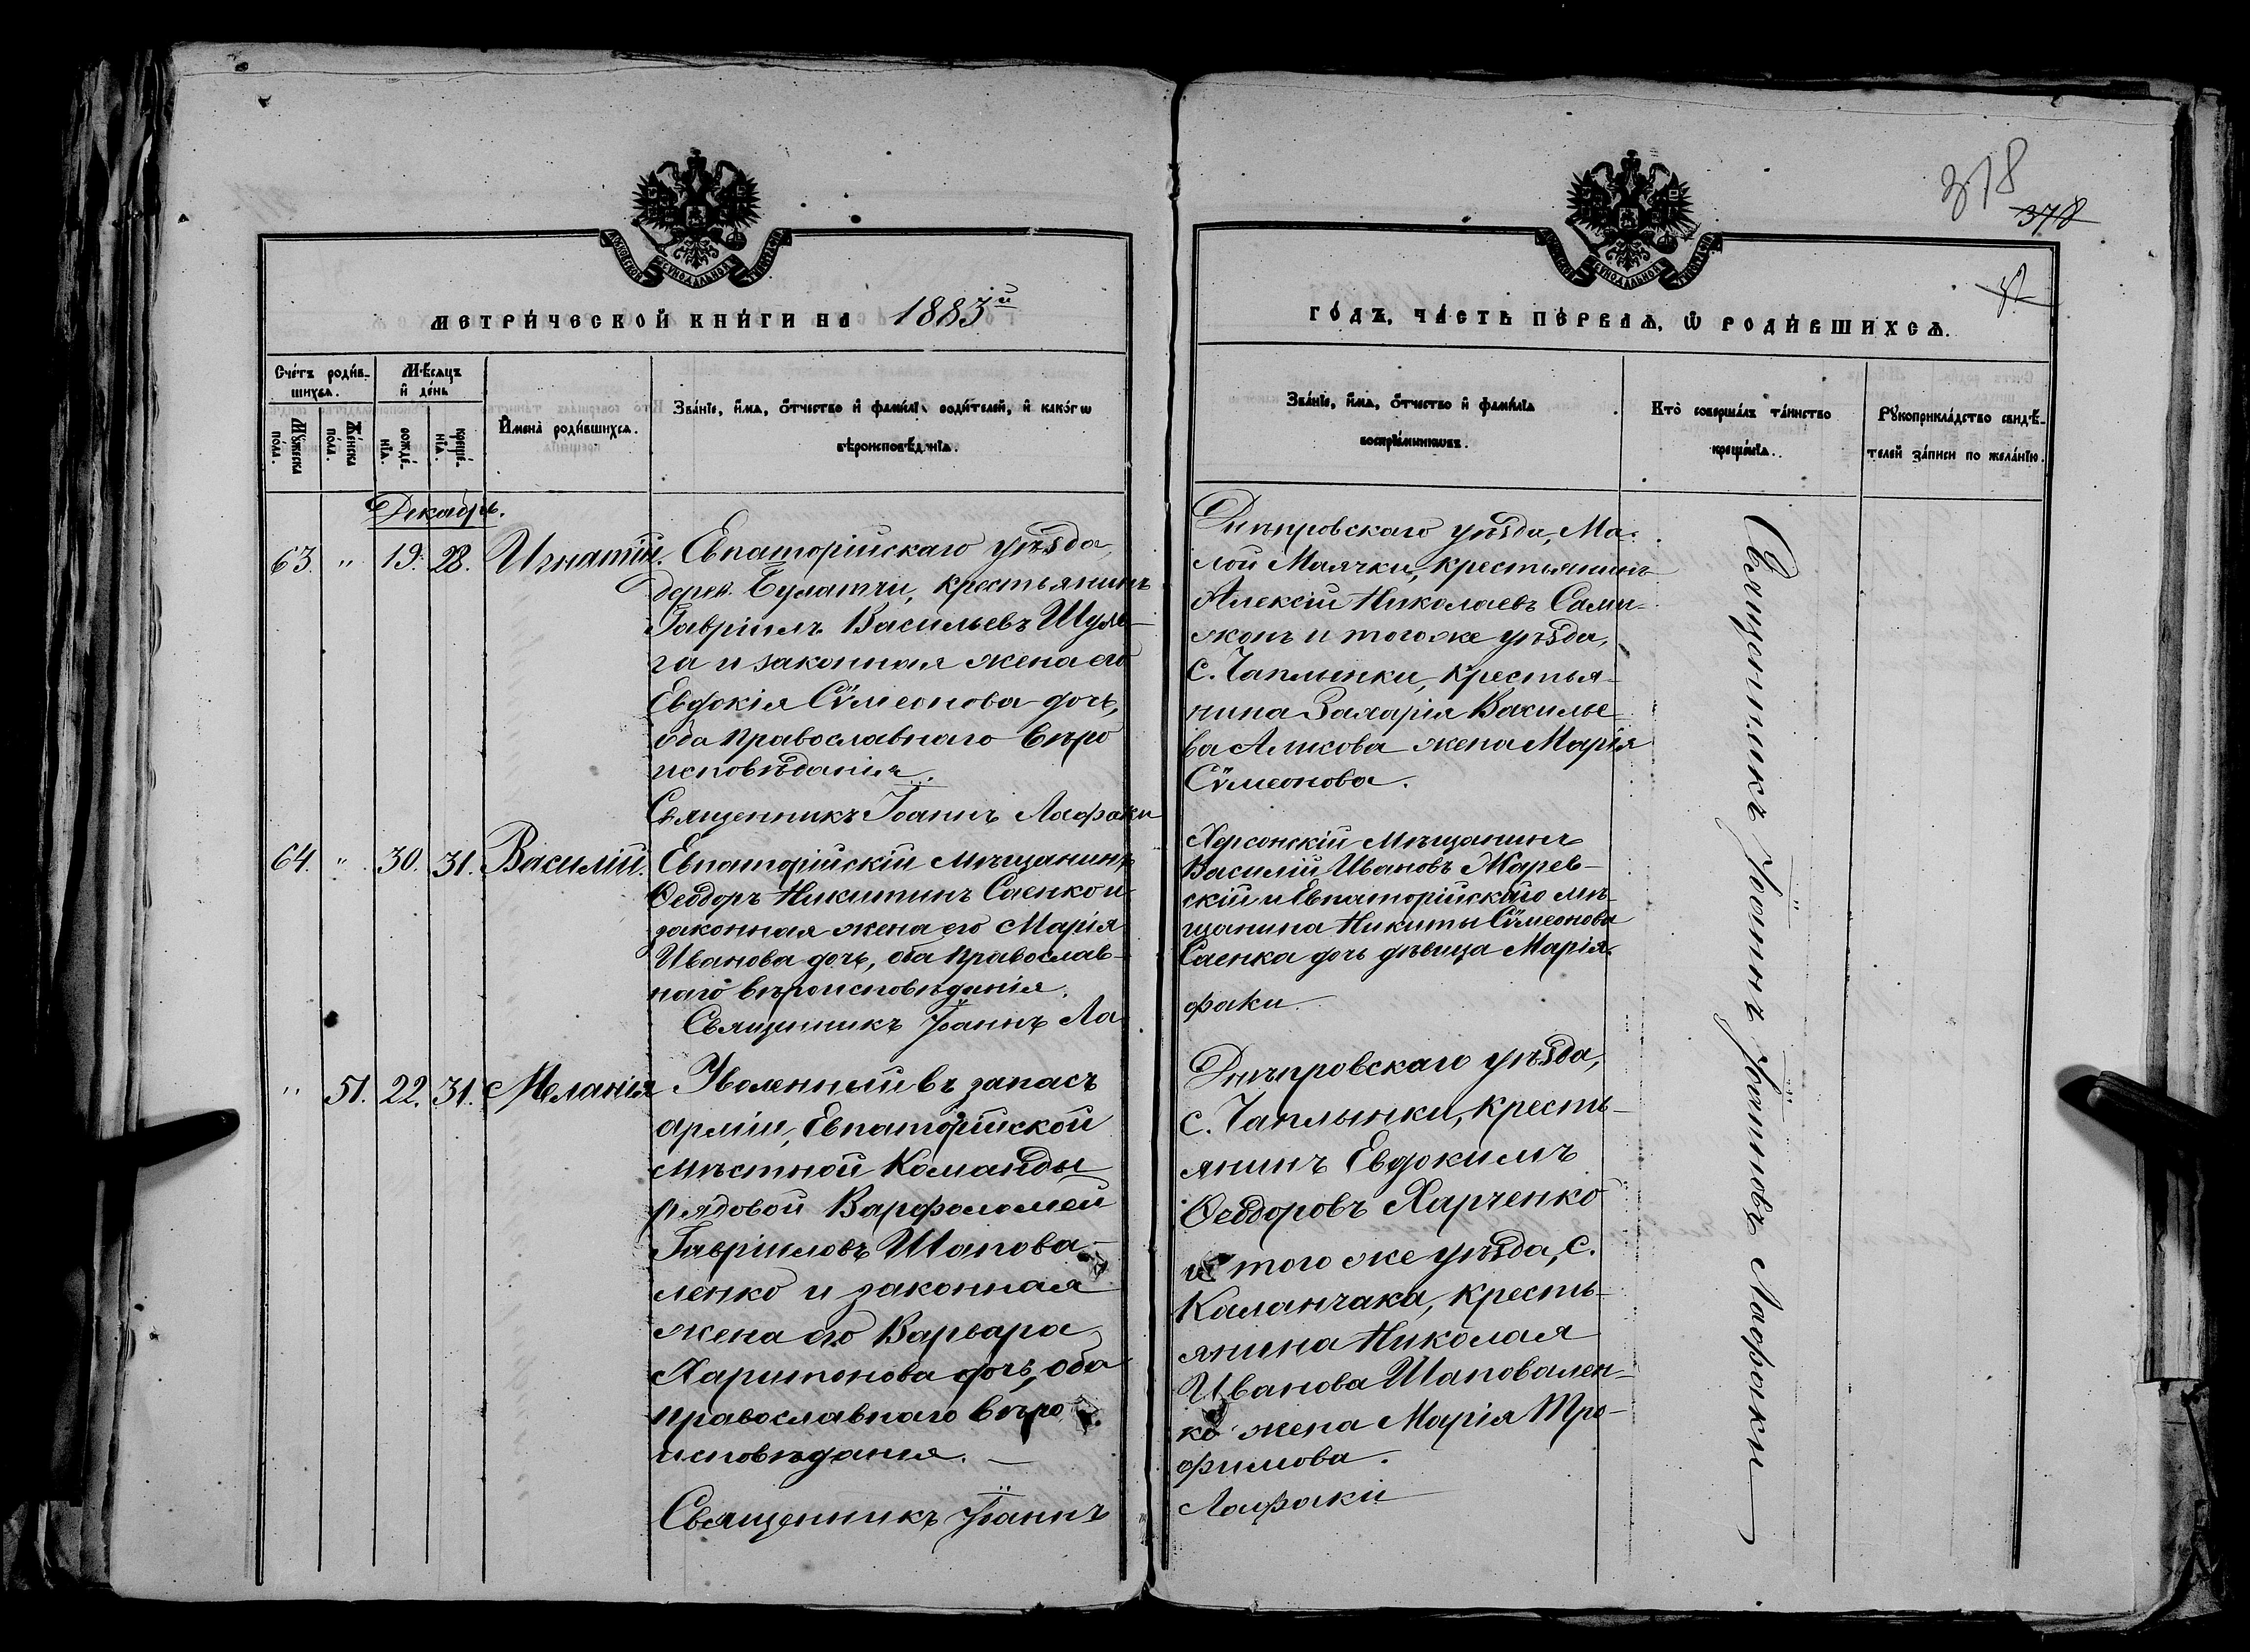 318
378
МОСКОВСКОЙ СѴНОДАЛЬНОЙ ТИПОГРАФІИ
МОСКОВСКОЙ СѴНОДАЛЬНОЙ ТИПОГРАФІИ
МЕТРИ́ЧЕСКОЙ КНИ́ГИ НА 1883й
ГО́ДЪ, ЧА́СТЬ ПЕ́РВАѦ, Ѡ҆ РОДИ́ВШИХСѦ.
Сче́тъ роди́в-
шихсѧ.
Мѣ́сѧцъ
и҆ де́нь
Му́жеска
по́ла.
Же́нска
по́ла.
рожде́-
нїѧ.
креще́-
нїѧ.
И҆мена̀ роди́вшихсѧ.
Зва́нїе, и҆́мѧ, ѻ҆́тчество и҆ фамилїѧ роди́телей, и҆ како́гѡ
вѣроисповѣ́данїѧ.
Зва́нїе, и҆́мѧ, ѻ҆́тчество и҆ фами́лїѧ
воспрїе́мниковъ.
Кто̀ соверша́лъ та́инство
креще́нїѧ.
Рꙋкоприкла́дство свидѣ́-
телей за́писи по жела́нїю.
Декабрь.
63. " 19. 28. Игнатій. Евпаторійскаго уѣзда,
дерев. Булатчи, крестьянинъ
Гавріилъ Васильевъ Шуля-
га и законная жена его
Евдокія Сѵмеонова дочь,
оба православнаго вѣро
исповѣданія.
Священникъ Іоаннъ Лафаки
Днѣпровскаго уѣзда, Ма-
лой Маячки, крестьянинъ
Алексій Николаевъ Сами-
жонъ и того же уѣзда,
с. Чаплынки, крестья-
нина Захарія Василье-
ва Аликова жена Марія
Сѵмеонова.
64. " 30. 31. Василій. Евпаторійскій мѣщанинъ
Ѳеодоръ Никитинъ Саенко и
законная жена его Марія
Иванова дочь, оба православ-
наго вѣроисповѣданія.
Священникъ Іоаннъ Ла
Херсонскій мѣщанинъ
Василій Ивановъ Жарев-
скій и Евпаторійскаго мѣ-
щанина Никиты Сѵмеонова
Саенка дочь дѣвица Марія.
факи
" 51. 22. 31. Меланія Уволенный въ запасъ
арміи, Евпаторійской
мѣстной команды
рядовой Варфоломей
Гавріиловъ Шапова-
ленко и законная
жена его Варвара
Харитонова дочь, оба
православнаго вѣро
исповѣданія.
Священникъ Іоаннъ
Днѣпровскаго уѣзда,
с. Чаплынки, кресть-
янинъ Евдокимъ
Ѳеодоровъ Харченко
и того же уѣзда, с.
Каланчака, кресть-
янина Николая
Иванова Шаповален-
ко жена Марія Тро-
фимова.
Лафаки
Священникъ Іоаннъ Іоанновъ Лафаки